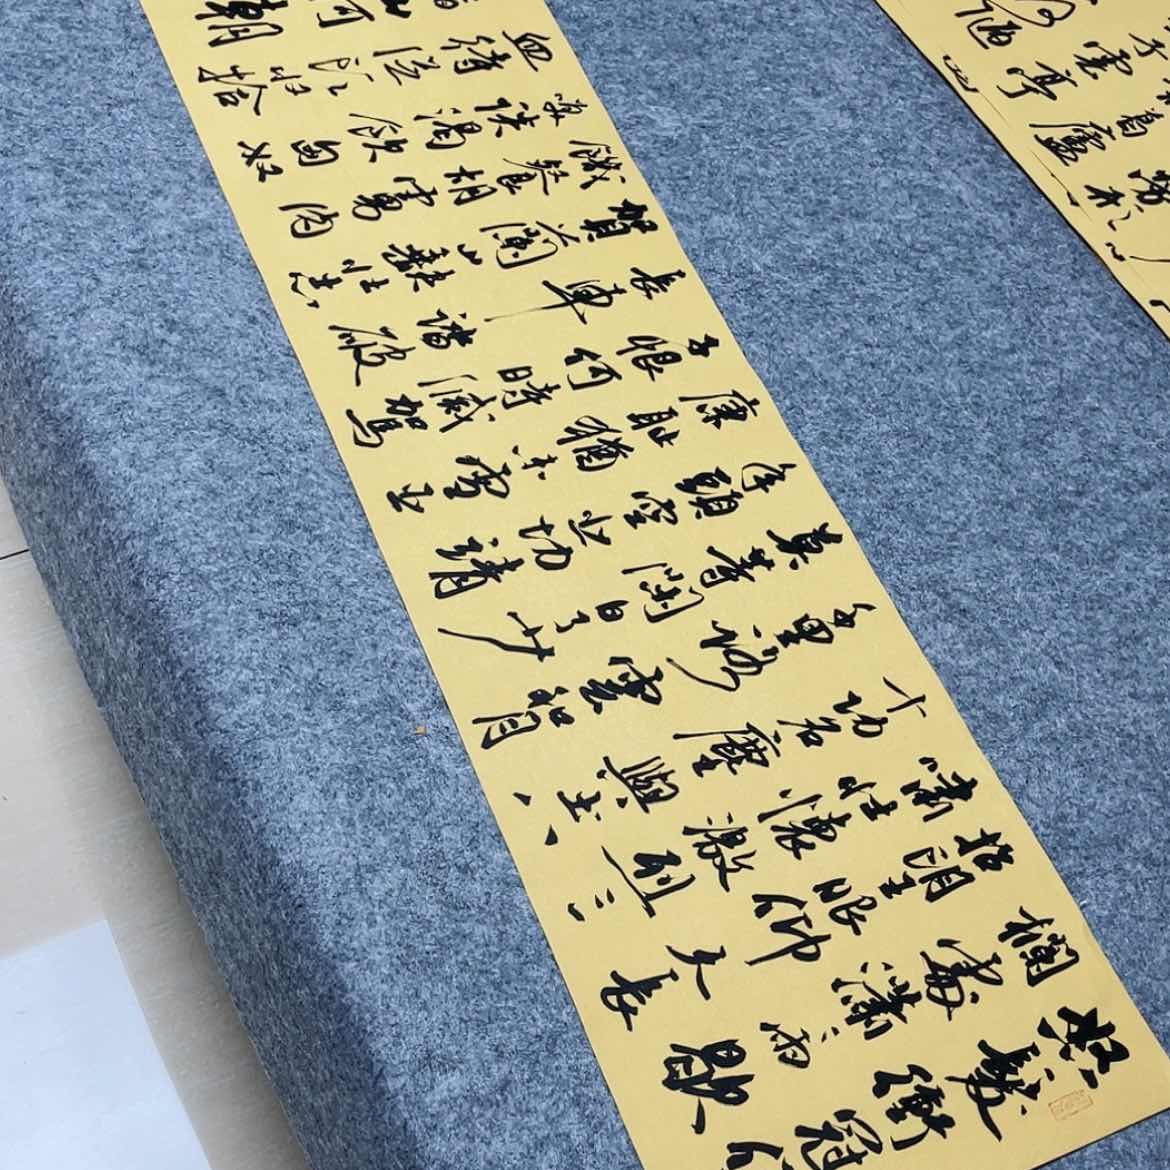 怒髮衝冠
欄處瀟瀟雨歇
抬望眼仰天長
嘯壯懷激烈三
十功名塵與土八
千里路雲和月
莫等閑白了少
年頭空悲切靖
康恥猶未雪臣
子恨何時滅駕
長車踏破
賀蘭山缺壯志
飢餐胡虜肉
笑談渴飲匈奴
血待從頭收拾
山河朝
勞形
葛廬
子雲亭